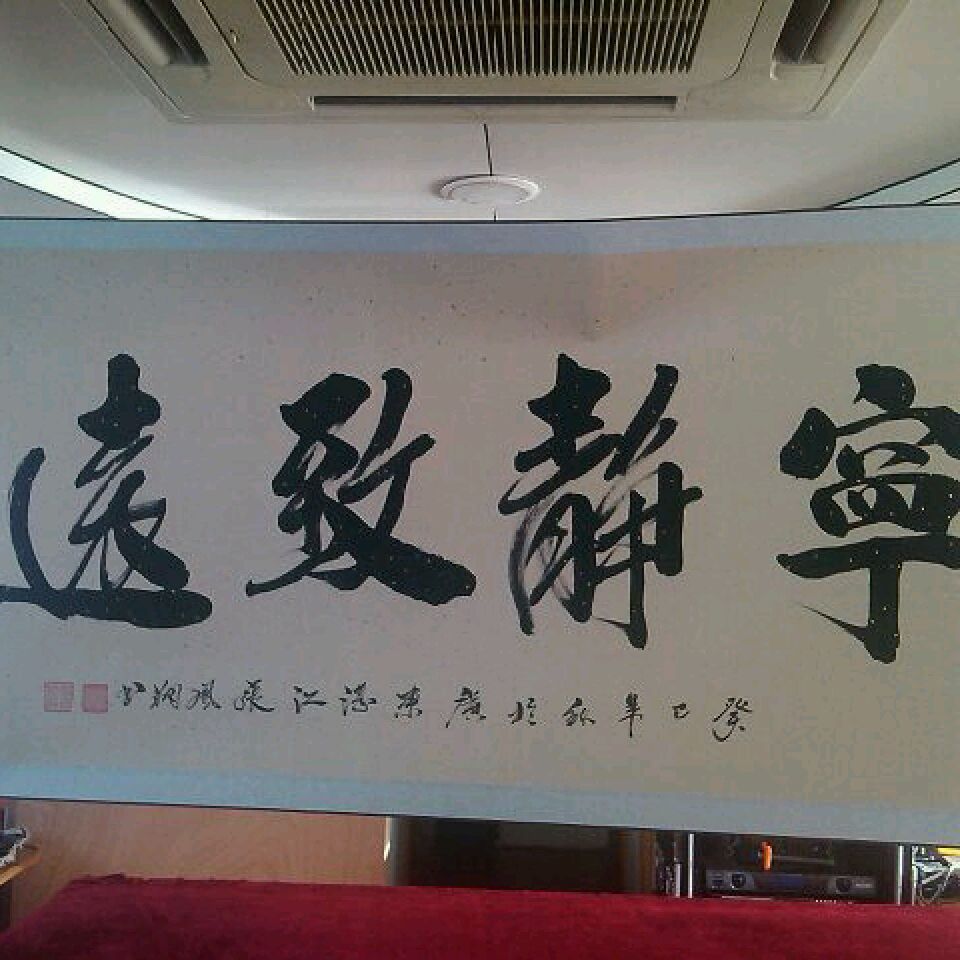 寧靜致遠
癸巳年秋於廣東湛江張鳳翔書